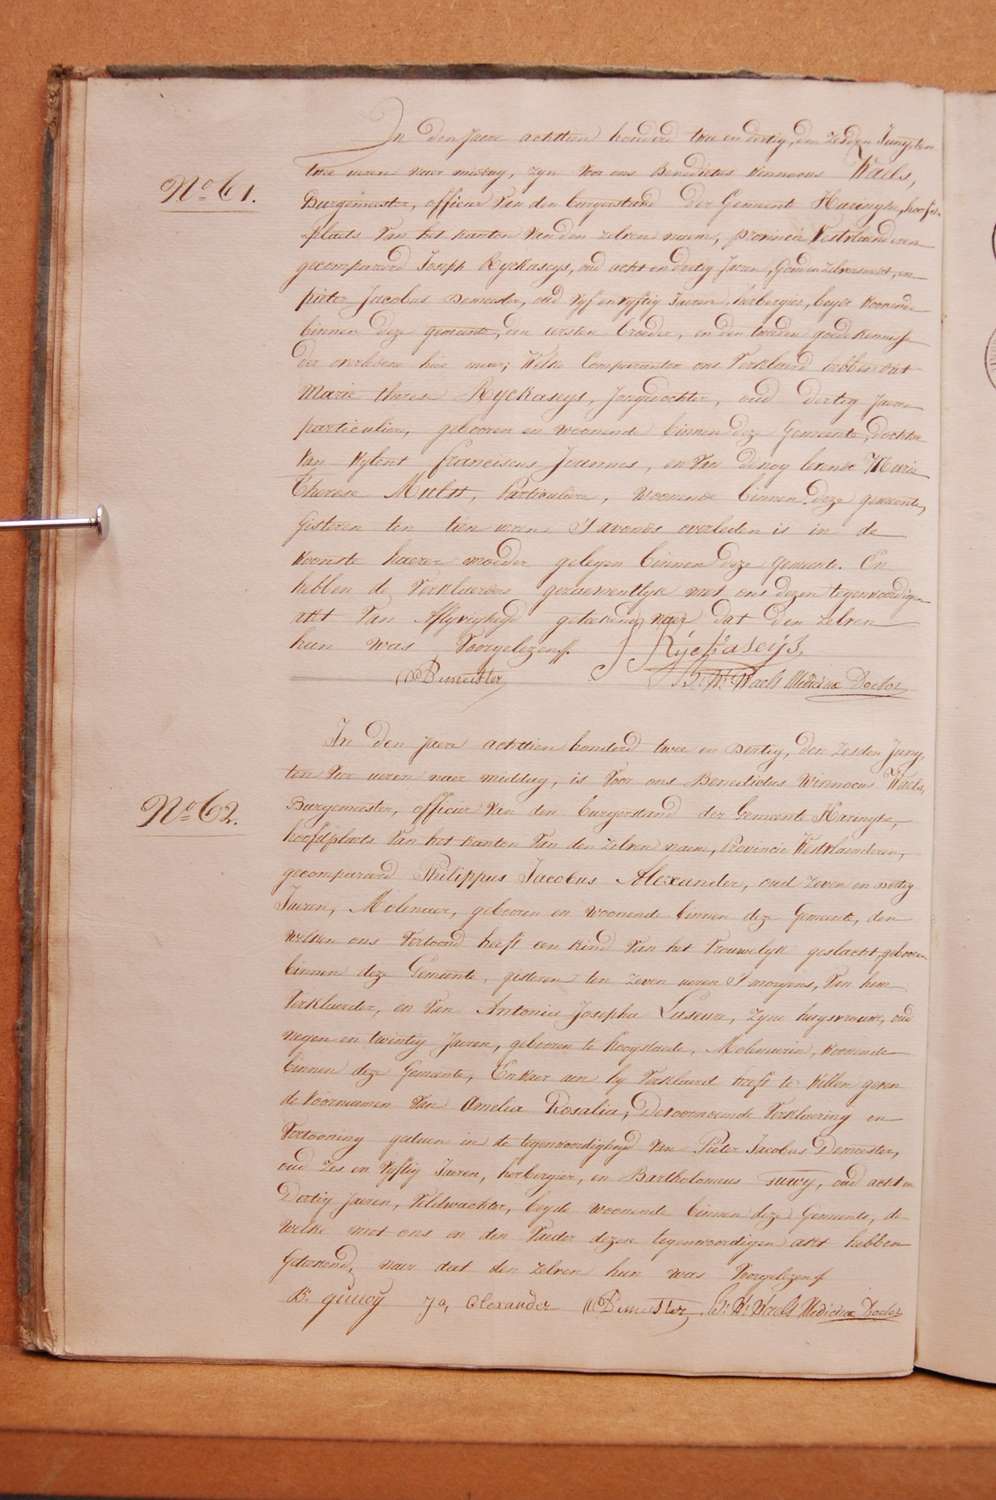 In den Jaere achttien honderd twee en dertig, den zesden Juny ten
No 61.
twee uren naer middag, zyn voor ons Benedictus Winnocus Waels,
Burgemeester, officier van den burgerstand der Gemeente Haringhe, hoofd-
plaets van het kanton van den zelven naem, provincie Westvlaenderen
gecompareerd Joseph Ryckaseys, oud acht en dertig Jaeren, en
pieter Jacobus Demeester, oud vyf en vyftig Jaeren herbergier, beyde woonende
binnen deze gemeente, den eersten broeder, en den tweeden goede kennis
der overledene hier naer; Welke Comparanten ons Verklaerd hebben dat
Marie therese Ryckaseys, Jongedochter, oud dertig Jaeren
particuliere, gebooren en woonende binnen deze Gemeente, Dochter
van wylent franciscus Joannes, en van de nog levende Marie
Therese Mulst, Particuliere, woonende binnen deze gemeente,
Gisteren ten tien uren S'avonds overleden is in de
woonste haerer moeder gelegen binnen deze gemeente. En
hebben de Verklaerders gezaementlyk met ons dezen tegenwoordigen
akt van Aflyvigheyd geteekend naer dat den zelven
hun was Voorgelezen
J Ryckaseijs,
PDemeester
B: W: Waels Medicinæ Doctor
In den Jaere achttien honderd twee en dertig, den zesden Juny,
ten vier uren naer middag, is voor ons Benedictus Winnocus Waels,
No 62.
Burgemeester, officier van den burgerstand der Gemeente Haringhe,
hoofdplaets van het kanton van den zelven naem, Provincie Westvlaenderen,
gecompareerd Philippus Jacobus Alexander, oud zeven en dertig
Jaeren, Molenaer, gebooren en woonende binnen deze Gemeente, den
welken ons Vertoond heeft een kind van het Vrouwelyk geslacht gebooren
binnen deze Gemeente, gisteren ten zeven uren S'morgens, van hem
Verklaerder, en van Antonia Josepha Laseure, zyne huysvrouwe, oud
negen en twintig Jaeren, gebooren te hoogstaede, Molenarin, woonende
binnen deze Gemeente, En waer aen hy Verklaerd heeft te willen geven
de voornamen van Amelia Rosalia; De voornoemde Verklaering en
Vertooning gedaen in de tegenwoordigheyd van Pieter Jacobus Demeester,
oud zes en vyftig Jaeren, herbergier, en Bartholomeus, oud acht en
Dertig Jaeren, Veldwachter, beyde woonende binnen deze Gemeente, de
welke met ons en den Vader dezen tegenwoordigen akt hebben
Geteekend, naer dat den zelven hun was Voorgelezen
B. Ja, Alexander PDemeester, B: W: Waels Medicinæ Doctor